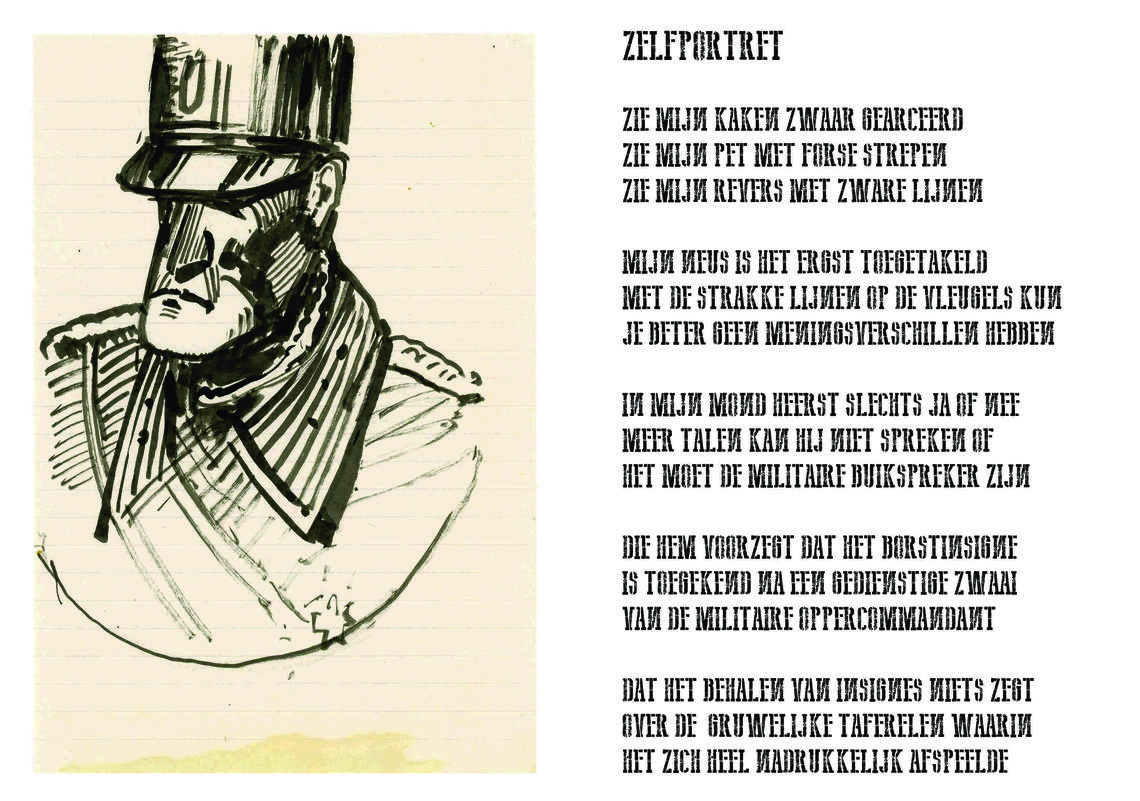 ZELFPORTRET

ZIE MIJN KAKEN ZWAAR GEARCEERD
ZIE MIJN PET MET FORSE STREPEN
ZIE MIJN REVERS MET ZWARE LIJNEN

MIJN NEUS IS HET ERGST TOEGETAKELD
MET DE STRAKKE LIJNEN OP DE VLEUGELS KUN
JE BETER GEEN MENINGSVERSCHILLEN HEBBEN

IN MIJN MOND HEERST SLECHTS JA OF NEE
MEER TALEN KAN HIJ NIET SPREKEN OF
HET MOET DE MILITAIRE BUIKSPREKER ZIJN

DIE HEM VOORZEGT DAT HET BORSTINSIGNE
IS TOEGEKEND NA EEN GEDIENSTIGE ZWAAI
VAN DE MILITAIRE OPPERCOMMANDANT

DAT HET BEHALEN VAN INSIGNES NIETS ZEGT
OVER DE GRUWELIJKE TAFERELEN WAARIN
HET ZICH HEEL NADRUKKELIJK AFSPEELDE